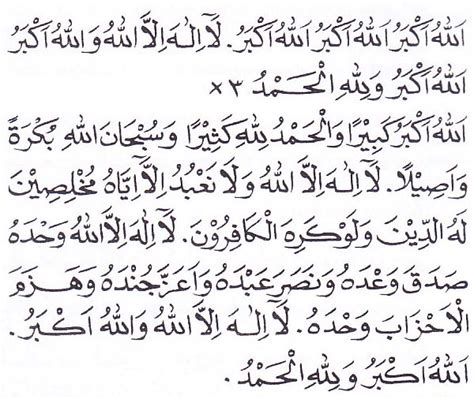 اَللهُ اَكْبَرُ اَللهُ اَكْبَرُ اَللهُ اَكْبَرُ. لَآ اِلٰهَ اِلاَّ اللهُ وَاللهُ اَكْبَرُ
اَللهُ اَكْبَرُ وَلِلّٰهِ الْحَمْدُ ×٣
اَللهُ اَكْبَرُ كَبِيْرًا وَالْحَمْدُ لِلّٰهِ كَثِيْرًا وَسُبْحَانَ اللهِ بُكْرَةً
وَاَصِيْلًا. لَآ اِلٰهَ اِلاَّ اللهُ وَلَا نَعْبُدُ اِلَّآ اِيَّاهُ مُخْلِصِيْنَ
لَهُ الدِّيْنَ وَلَوْكَرِهَ الْكَافِرُوْنَ. لَآ اِلٰهَ اِلاَّ اللهُ وَحْدَهُ
صَدَقَ وَعْدَهُ وَنَصَرَ عَبْدَهُ وَاَعَزَّ جُنْدَهُ وَهَزَمَ
الْاَحْزَابَ وَحْدَهُ. لَآ اِلٰهَ اِلاَّ اللهُ وَاللهُ اَكْبَرُ.
اَللهُ اَكْبَرُ وَلِلّٰهِ الْحَمْدُ.